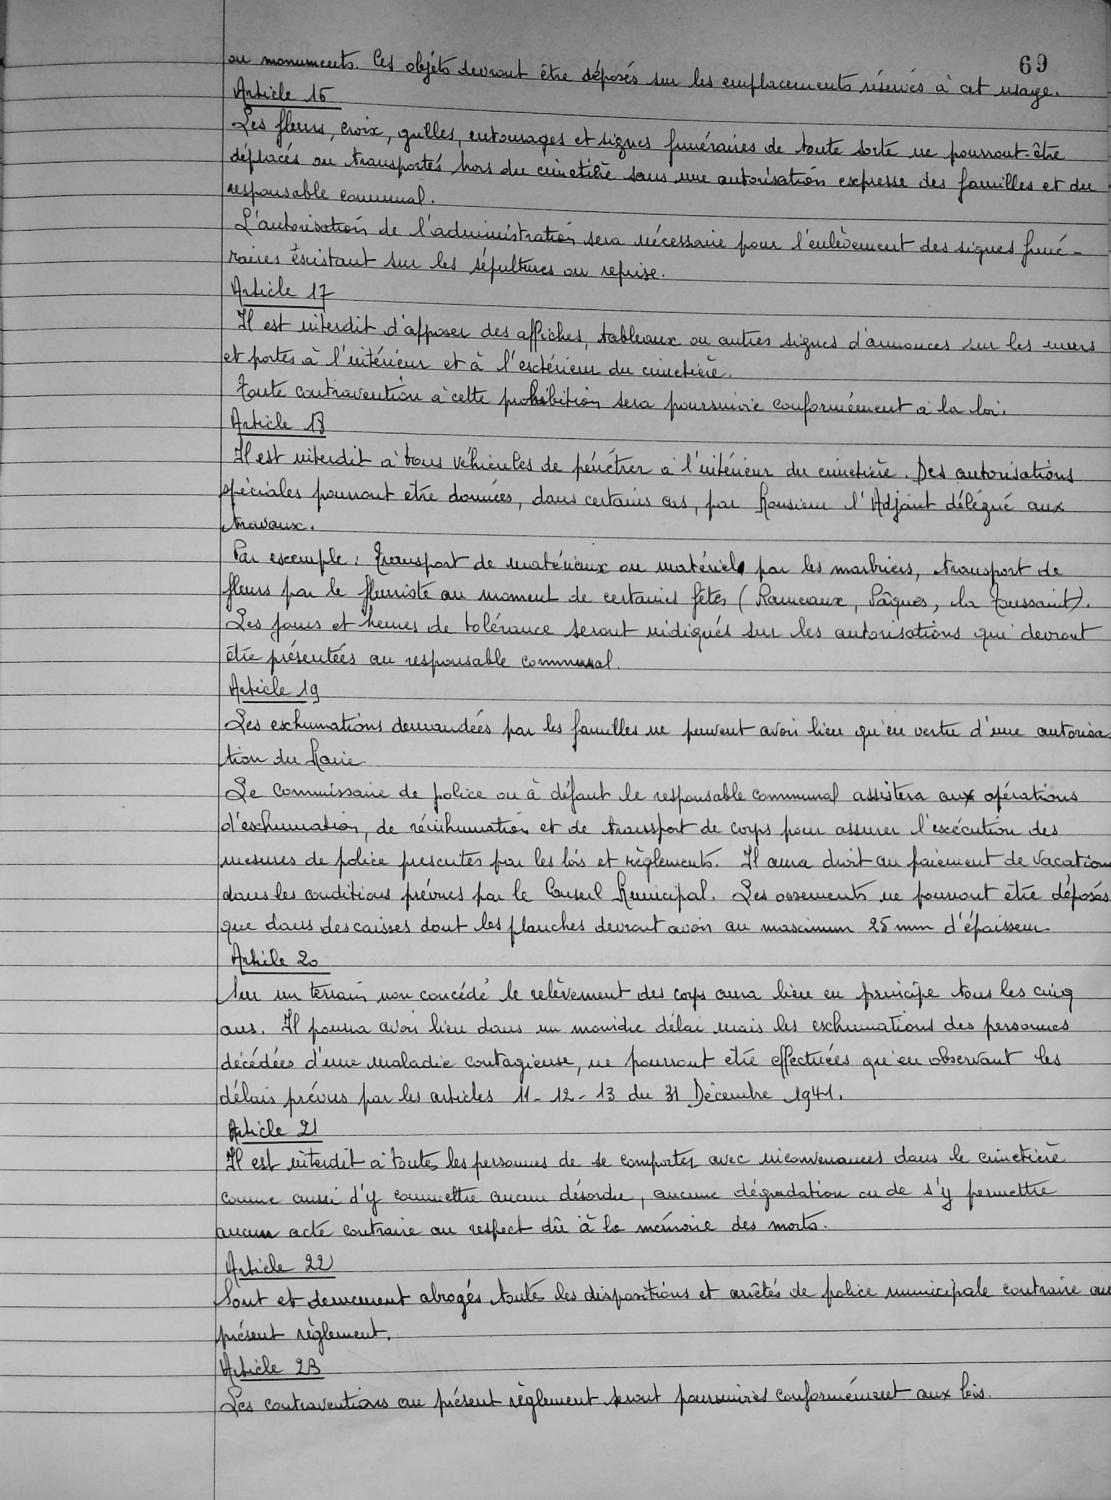 69
ou monuments. Ces objets devront être déposés sur les emplacements réservés à cet usage.
Article 16
Les fleurs, croix, grilles, entourages et signes funéraires de toute sorte ne pourront-être
déplacés ou transportés hors du cimetière sans une autorisation expresse des familles et du
responsable communal.
L'autorisation de l'administration sera nécessaire pour l'enlèvement des signes funé-
raires existant sur les sépultures ou reprise.
Article 17
Il est interdit d'apposer des affiches, tableaux ou autres signes d'annonces sur les murs
et portes à l'intérieur et à l'extérieur du cimetière.
Toute contravention à cette prohibition sera poursuivie conformément à la loi.
Article 18
Il est interdit à tous véhicules de pénétrer à l'intérieur du cimetière. Des autorisations
spéciales pourront être données, dans certains cas, par Monsieur l'Adjoint délégué aux
travaux.
Par exemple : Transport de matériaux ou matériel par les marbriers, transport de
fleurs par le fleuriste au moment de certaines fêtes (Rameaux, Pâques, la Toussaint).
Les jours et heures de tolérance seront indiqués sur les autorisations qui devront
être présentées au responsable communal.
Article 19
Les exhumations demandées par les familles ne peuvent avoir lieu qu'en vertu d'une autorisa
tion du Maire.
Le Commissaire de police ou à défaut le responsable communal assistera aux opérations
d'exhumation, de réinhumation et de transport de corps pour assurer l'exécution des
mesures de police prescrites par les lois et règlements. Il aura droit au paiement de vacation
dans les conditions prévues par le Conseil Municipal. Les ossements ne pourront être déposés
que dans des caisses dont les planches devront avoir au maximum 25 mm d'épaisseur.
Article 20
Sur un terrain non concédé le relèvement des corps aura lieu en principe tous les cinq
ans. Il pourra avoir lieu dans un moindre délai mais les exhumations des personnes
décédées d'une maladie contagieuse, ne pourront être effectuées qu'en observant les
délais prévus par les articles 11-12-13 du 31 Décembre 1941.
Article 21
Il est interdit à toutes les personnes de se comporter avec inconvenances dans le cimetière
comme aussi d'y commettre aucun désordre, aucune dégradation ou de s'y permettre
aucun acte contraire au respect dû à la mémoire des morts.
Article 22
Sont et demeurent abrogés toutes les dispositions et arrêtés de police municipale contraire au
présent règlement.
Article 23
Les contraventions au présent règlement seront poursuivies conformément aux lois.